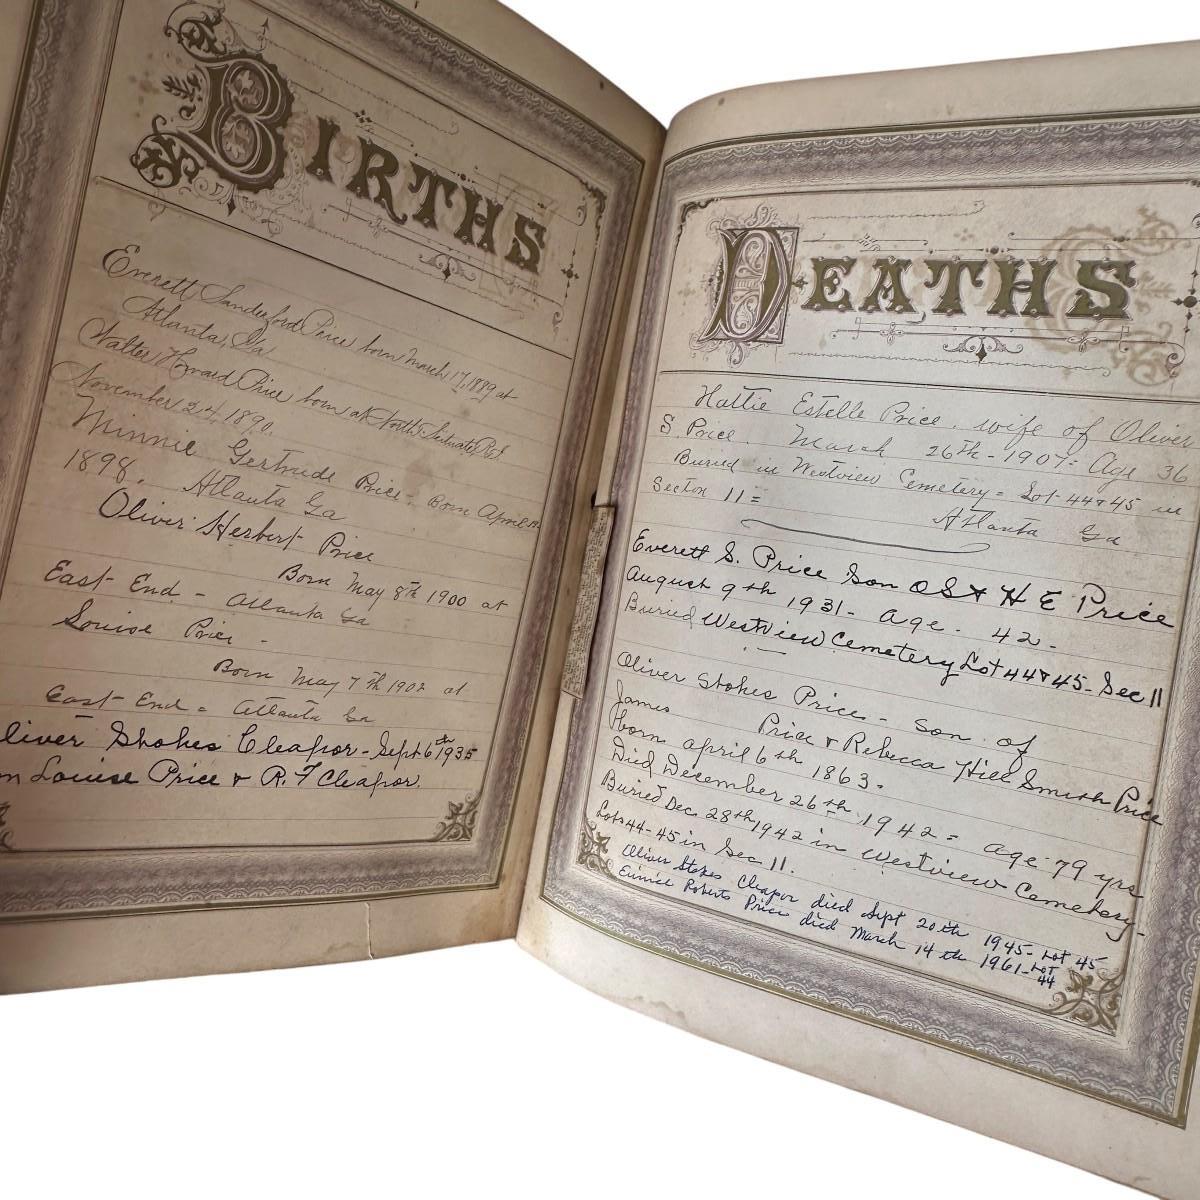 BIRTHS
Everett Sandeford Price born March 17, 1889 at
Atlanta, Ga
Walter Howard Price born at North Scituate, R.I.
November 24, 1890.
Minnie Gertrude Price - Born April
1898. Atlanta Ga
Oliver Herbert Price
Born May 8th 1900 at
East End - Atlanta Ga
Louise Price -
Born May 7th 1902 at
East End = Atlanta Ga
liver Stokes Cleapor - Sept 6th 1935
n Louise Price & R. F Cleapor.
DEATHS
Hattie Estelle Price. wife of Oliver
S. Price. March 26th - 1907 = Age 36
Buried in Westview Cemetery = Lot 44 & 45 in
Section 11 =
Atlanta Ga
Everett S. Price Son O S & H E Price
August 9th 1931 - Age. 42 -
Buried Westview Cemetery Lot 44 & 45 - Sec 11
Oliver Stokes Price - Son of
James Price & Rebecca Hill Smith Price
Born april 6th 1863.
Died December 26th 1942 = age 79 yrs
Buried Dec. 28th 1942 in Westview Cemetery -
Lots 44-45 in Sec 11.
Oliver Stokes Cleapor died Sept 20th 1945 - Lot 45
Eunice Roberts Price died March 14th 1961 - Lot
44